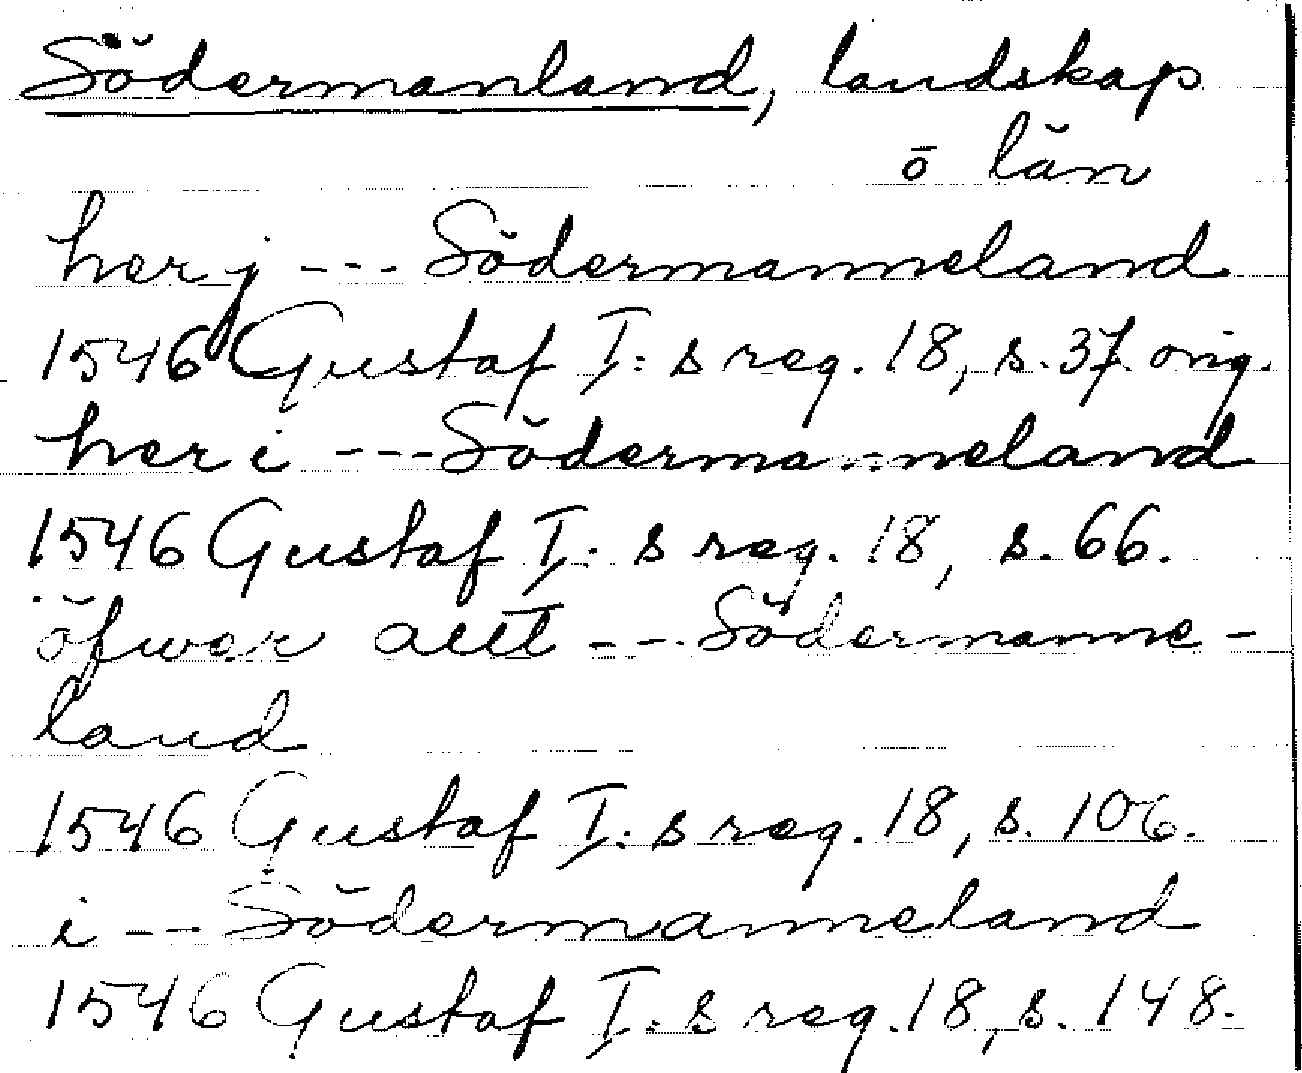 Södermanland, landskap
o län
her j --- Södermanneland
1546 Gustaf I:s reg. 18, s. 37. orig.
her i --- Södermanneland
1546 Gustaf I:s reg. 18, s. 66.
öfwer altt --- Södermanne-
land
1546 Gustaf I:s reg. 18, s. 106.
i -- Södermanneland
1546 Gustaf I:s reg. 18, s. 148.